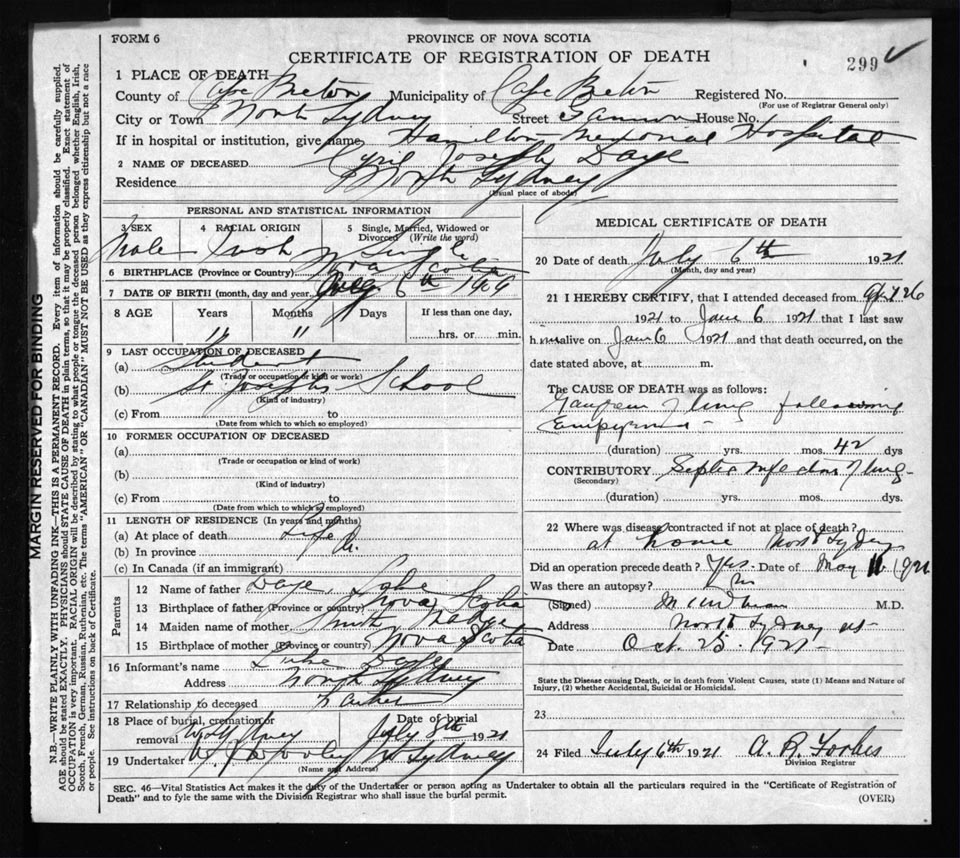 FORM 6
PROVINCE OF NOVA SCOTIA
CERTIFICATE OF REGISTRATION OF DEATH
299
1 PLACE OF DEATH
County of Cape Breton Municipality of Cape Breton Registered No.
(For use of Registrar General only)
City or Town North Sydney Street Gannon House No.
If in hospital or institution, give name Hamilton Memorial Hospital
2 NAME OF DECEASED Cyril Joseph Daye
Residence North Sydney
(Usual place of abode)
PERSONAL AND STATISTICAL INFORMATION
3 SEX 4 RACIAL ORIGIN 5 Single, Married, Widowed or Divorced (Write the word)
Male Irish Single
6 BIRTHPLACE (Province or Country) Nova Scotia
7 DATE OF BIRTH (month, day and year) 6th 1909
8 AGE Years Months Days If less than one day,
11 11 hrs. or min.
9 LAST OCCUPATION OF DECEASED
(a) Student
(Trade or occupation or kind of work)
(b) St Josephs School
(Kind of industry)
(c) From to
(Date from which to which so employed)
10 FORMER OCCUPATION OF DECEASED
(a)
(Trade or occupation or kind of work)
(b)
(Kind of industry)
(c) From to
(Date from which to which so employed)
11 LENGTH OF RESIDENCE (In years and months)
(a) At place of death Life
(b) In province
(c) In Canada (if an immigrant)
Parents
12 Name of father Daye, Luke
13 Birthplace of father (Province or country) Nova Scotia
14 Maiden name of mother Smith
15 Birthplace of mother (Province or country) Nova Scotia
16 Informant's name Luke Daye
Address North Sydney
17 Relationship to deceased Father
18 Place of burial, cremation or removal N. Sydney Date of burial July 8th 1921
19 Undertaker N. Sydney
(Name and Address)
MEDICAL CERTIFICATE OF DEATH
20 Date of death July 6th 1921
(Month, day and year)
21 I HEREBY CERTIFY, that I attended deceased from 26
1921 to June 6 1921 that I last saw
him alive on June 6 1921 and that death occurred, on the
date stated above, at m.
The CAUSE OF DEATH was as follows:
Gangrene of lung following
Empyema -
(duration) yrs. mos. 42 dys
CONTRIBUTORY Septic infection of lung -
(Secondary)
(duration) yrs. mos. dys.
22 Where was disease contracted if not at place of death?
at home North Sydney
Did an operation precede death? Yes. Date of May 1921
Was there an autopsy? No
(Signed) M.D.
Address North Sydney NS -
Date Oct. 25. 1921 -
State the Disease causing Death, or in death from Violent Causes, state (1) Means and Nature of
Injury, (2) whether Accidental, Suicidal or Homicidal.
23
24 Filed July 6th 1921 A. R. Forbes
Division Registrar
SEC. 46—Vital Statistics Act makes it the duty of the Undertaker or person acting as Undertaker to obtain all the particulars required in the "Certificate of Registration of
Death" and to fyle the same with the Division Registrar who shall issue the burial permit.
(OVER)
MARGIN RESERVED FOR BINDING
N.B.—WRITE PLAINLY WITH UNFADING INK—THIS IS A PERMANENT RECORD. Every item of information should be carefully supplied.
AGE should be stated EXACTLY. PHYSICIANS should STATE CAUSE OF DEATH in plain terms, so that it may be properly classified. Exact statement of
OCCUPATION is very important. RACIAL ORIGIN will be described by stating to what people or tongue the deceased person belonged whether English, Irish,
Scotch, French, German, Russian, Ruthenian, etc. The terms "AMERICAN" OR "CANADIAN" MUST NOT BE USED as they express citizenship but not a race
or people. See instructions on back of Certificate.